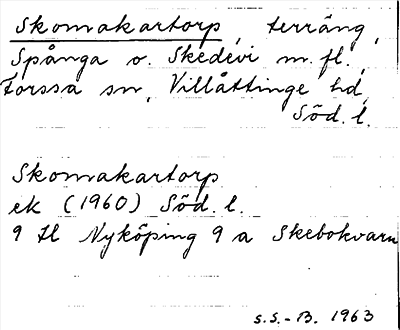 Skomakartorp, terräng,
Spånga o. Skedevi m. fl.,
Forssa sn, Villåttinge hd,
Söd. l.
Skomakartorp
ek (1960) Söd. l.
9 H Nyköping 9 a Skebokvarn
S.S.-B. 1963